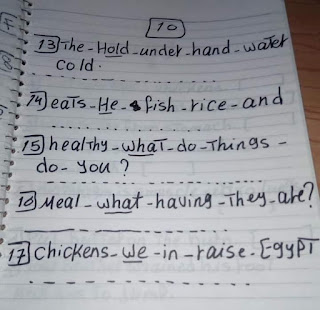 10
13 The-Hold-under-hand-water
cold.
14 eats-He-fish-rice-and
15 healthy-what-do-things-
do-you?
16 Meal-what-having-They-are?
17 Chickens-we-in-raise-Egypt